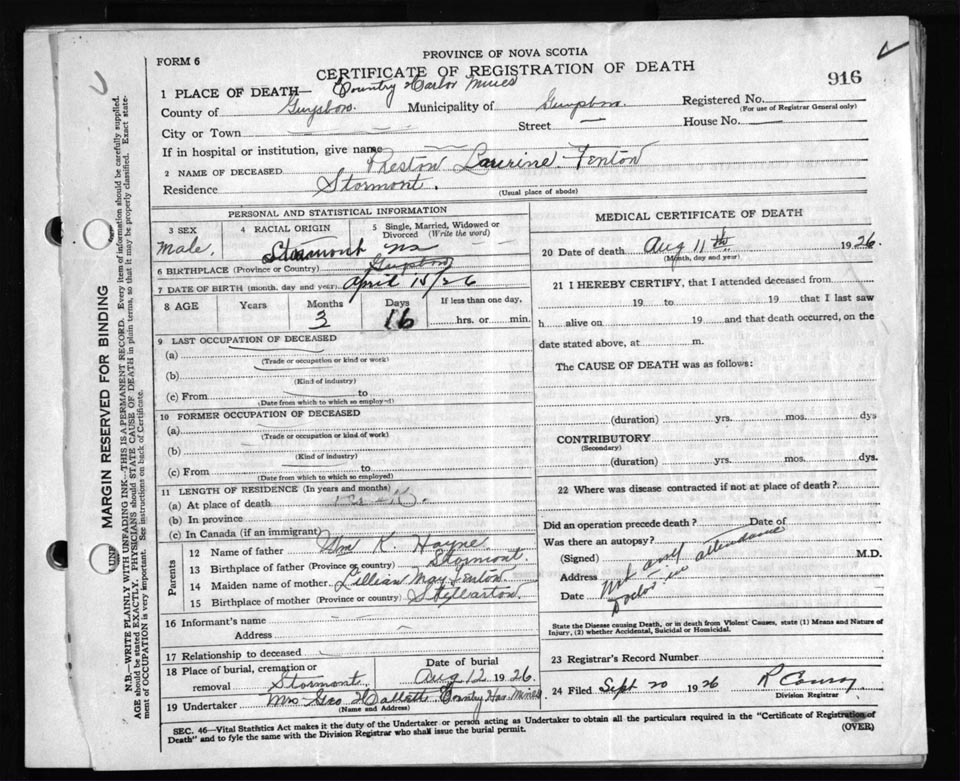 PROVINCE OF NOVA SCOTIA
FORM 6
CERTIFICATE OF REGISTRATION OF DEATH
916
1 PLACE OF DEATH— Country Harbor Mines
County of Guysboro. Municipality of Guysboro. Registered No.
(For use of Registrar General only)
City or Town Street — House No. —
If in hospital or institution, give name
2 NAME OF DECEASED Preston Laurine Fenton
Residence Stormont.
(Usual place of abode)
PERSONAL AND STATISTICAL INFORMATION
3 SEX 4 RACIAL ORIGIN 5 Single, Married, Widowed or Divorced (Write the word)
Male, Stormont NS
6 BIRTHPLACE (Province or Country) Guysboro
7 DATE OF BIRTH (month, day and year) April 15/26
8 AGE Years Months Days If less than one day,
3 16 hrs. or min.
9 LAST OCCUPATION OF DECEASED
(a)
(Trade or occupation or kind or work)
(b)
(Kind of industry)
(c) From to
(Date from which to which so employed)
10 FORMER OCCUPATION OF DECEASED
(a)
(Trade or occupation or kind of work)
(b)
(Kind of industry)
(c) From to
(Date from which to which so employed)
11 LENGTH OF RESIDENCE (In years and months)
(a) At place of death
(b) In province
(c) In Canada (if an immigrant)
Parents
12 Name of father Wm K. Hayne
13 Birthplace of father (Province or country) Stormont
14 Maiden name of mother Lillian May Fenton.
15 Birthplace of mother (Province or country) Stellarton.
16 Informant's name
Address
17 Relationship to deceased
18 Place of burial, cremation or removal Stormont. Date of burial Aug 12 1926.
19 Undertaker Mrs Geo Hallett Country Har Mines
(Name and Address)
MEDICAL CERTIFICATE OF DEATH
20 Date of death Aug 11th 1926.
(Month, day and year)
21 I HEREBY CERTIFY, that I attended deceased from
19 to 19 that I last saw
h alive on 19 and that death occurred, on the
date stated above, at m.
The CAUSE OF DEATH was as follows:
(duration) yrs. mos. dys
CONTRIBUTORY
(Secondary)
(duration) yrs. mos. dys.
22 Where was disease contracted if not at place of death?
Did an operation precede death? Date of
Was there an autopsy?
(Signed) M.D.
Address
Date
Not any
Doctor in attendance
State the Disease causing Death, or in death from Violent Causes, state (1) Means and Nature of
Injury, (2) whether Accidental, Suicidal or Homicidal.
23 Registrar's Record Number
24 Filed Sept 20 1926 R Conroy
Division Registrar
SEC. 46—Vital Statistics Act makes it the duty of the Undertaker or person acting as Undertaker to obtain all the particulars required in the "Certificate of Registration of
Death" and to fyle the same with the Division Registrar who shall issue the burial permit.
(OVER)
MARGIN RESERVED FOR BINDING
N.B.—WRITE PLAINLY WITH UNFADING INK—THIS IS A PERMANENT RECORD. Every item of information should be carefully supplied.
AGE should be stated EXACTLY. PHYSICIANS should STATE CAUSE OF DEATH in plain terms, so that it may be properly classified. Exact state-
ment of OCCUPATION is very important. See instructions on back of Certificate.